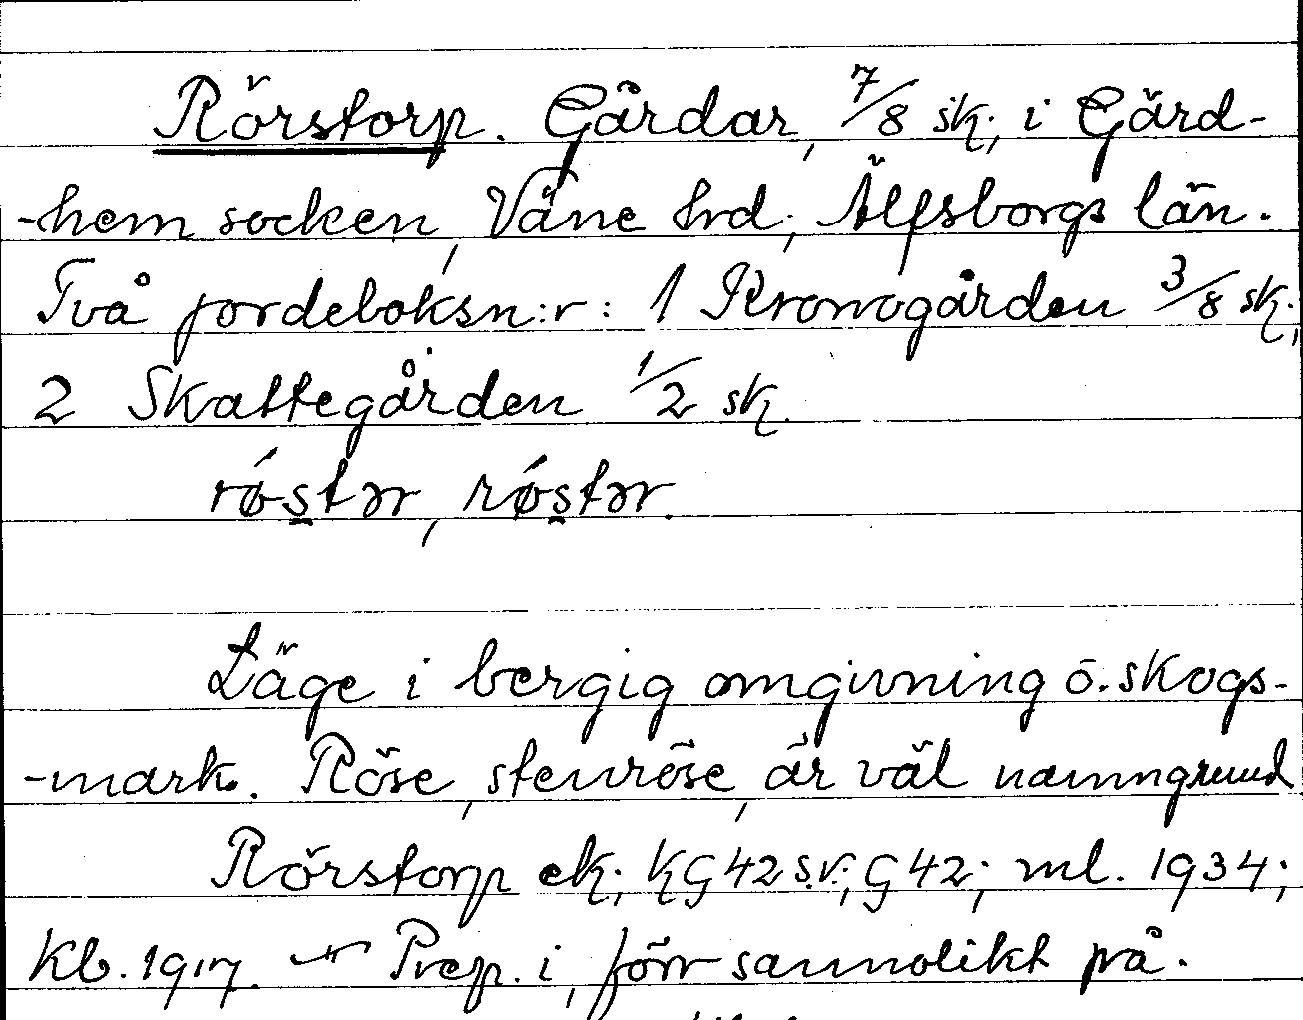 Rörstorp. Gårdar, 7/8 sk., i Gärd-
-hem socken, Väne hrd., Älfsborgs län.
Två jordeboksn:r: 1 Kronogården 3/8 sk.,
2 Skattegården 1/2 sk.
rǿs̱tər, rǿs̱tər.
Läge i bergig omgivning o. skogs-
-mark. Röse, stenröse, är väl namngrund
Rörstorp ek., KG 42 s.v., G 42; ml. 1934;
Kb. 1917. Prep. i, förr sannolikt på.